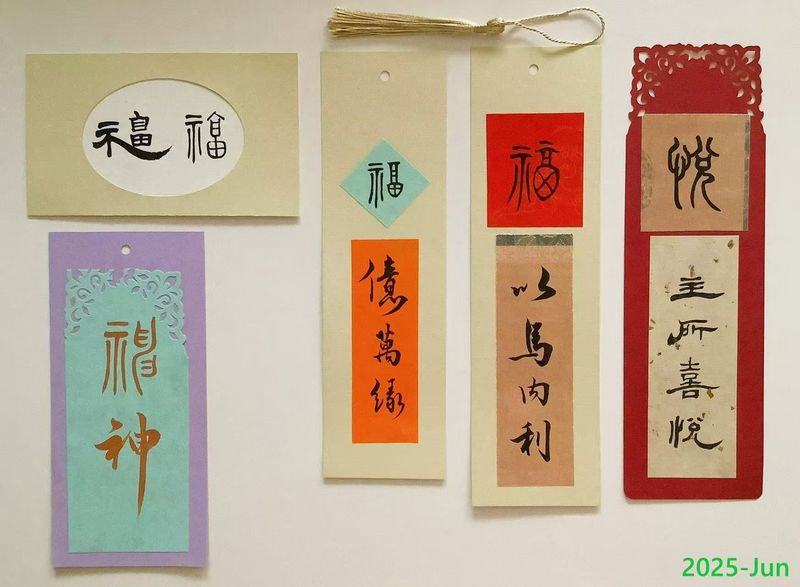 福福
神
神
福
億萬緣
福
以馬內利
悅
主所喜悅
2025-Jun